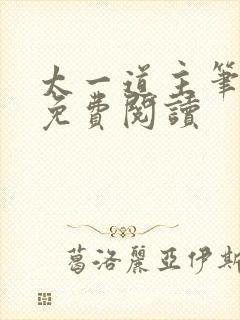 太一道主筆
免費閱讀
葛洛麗亞伊斯